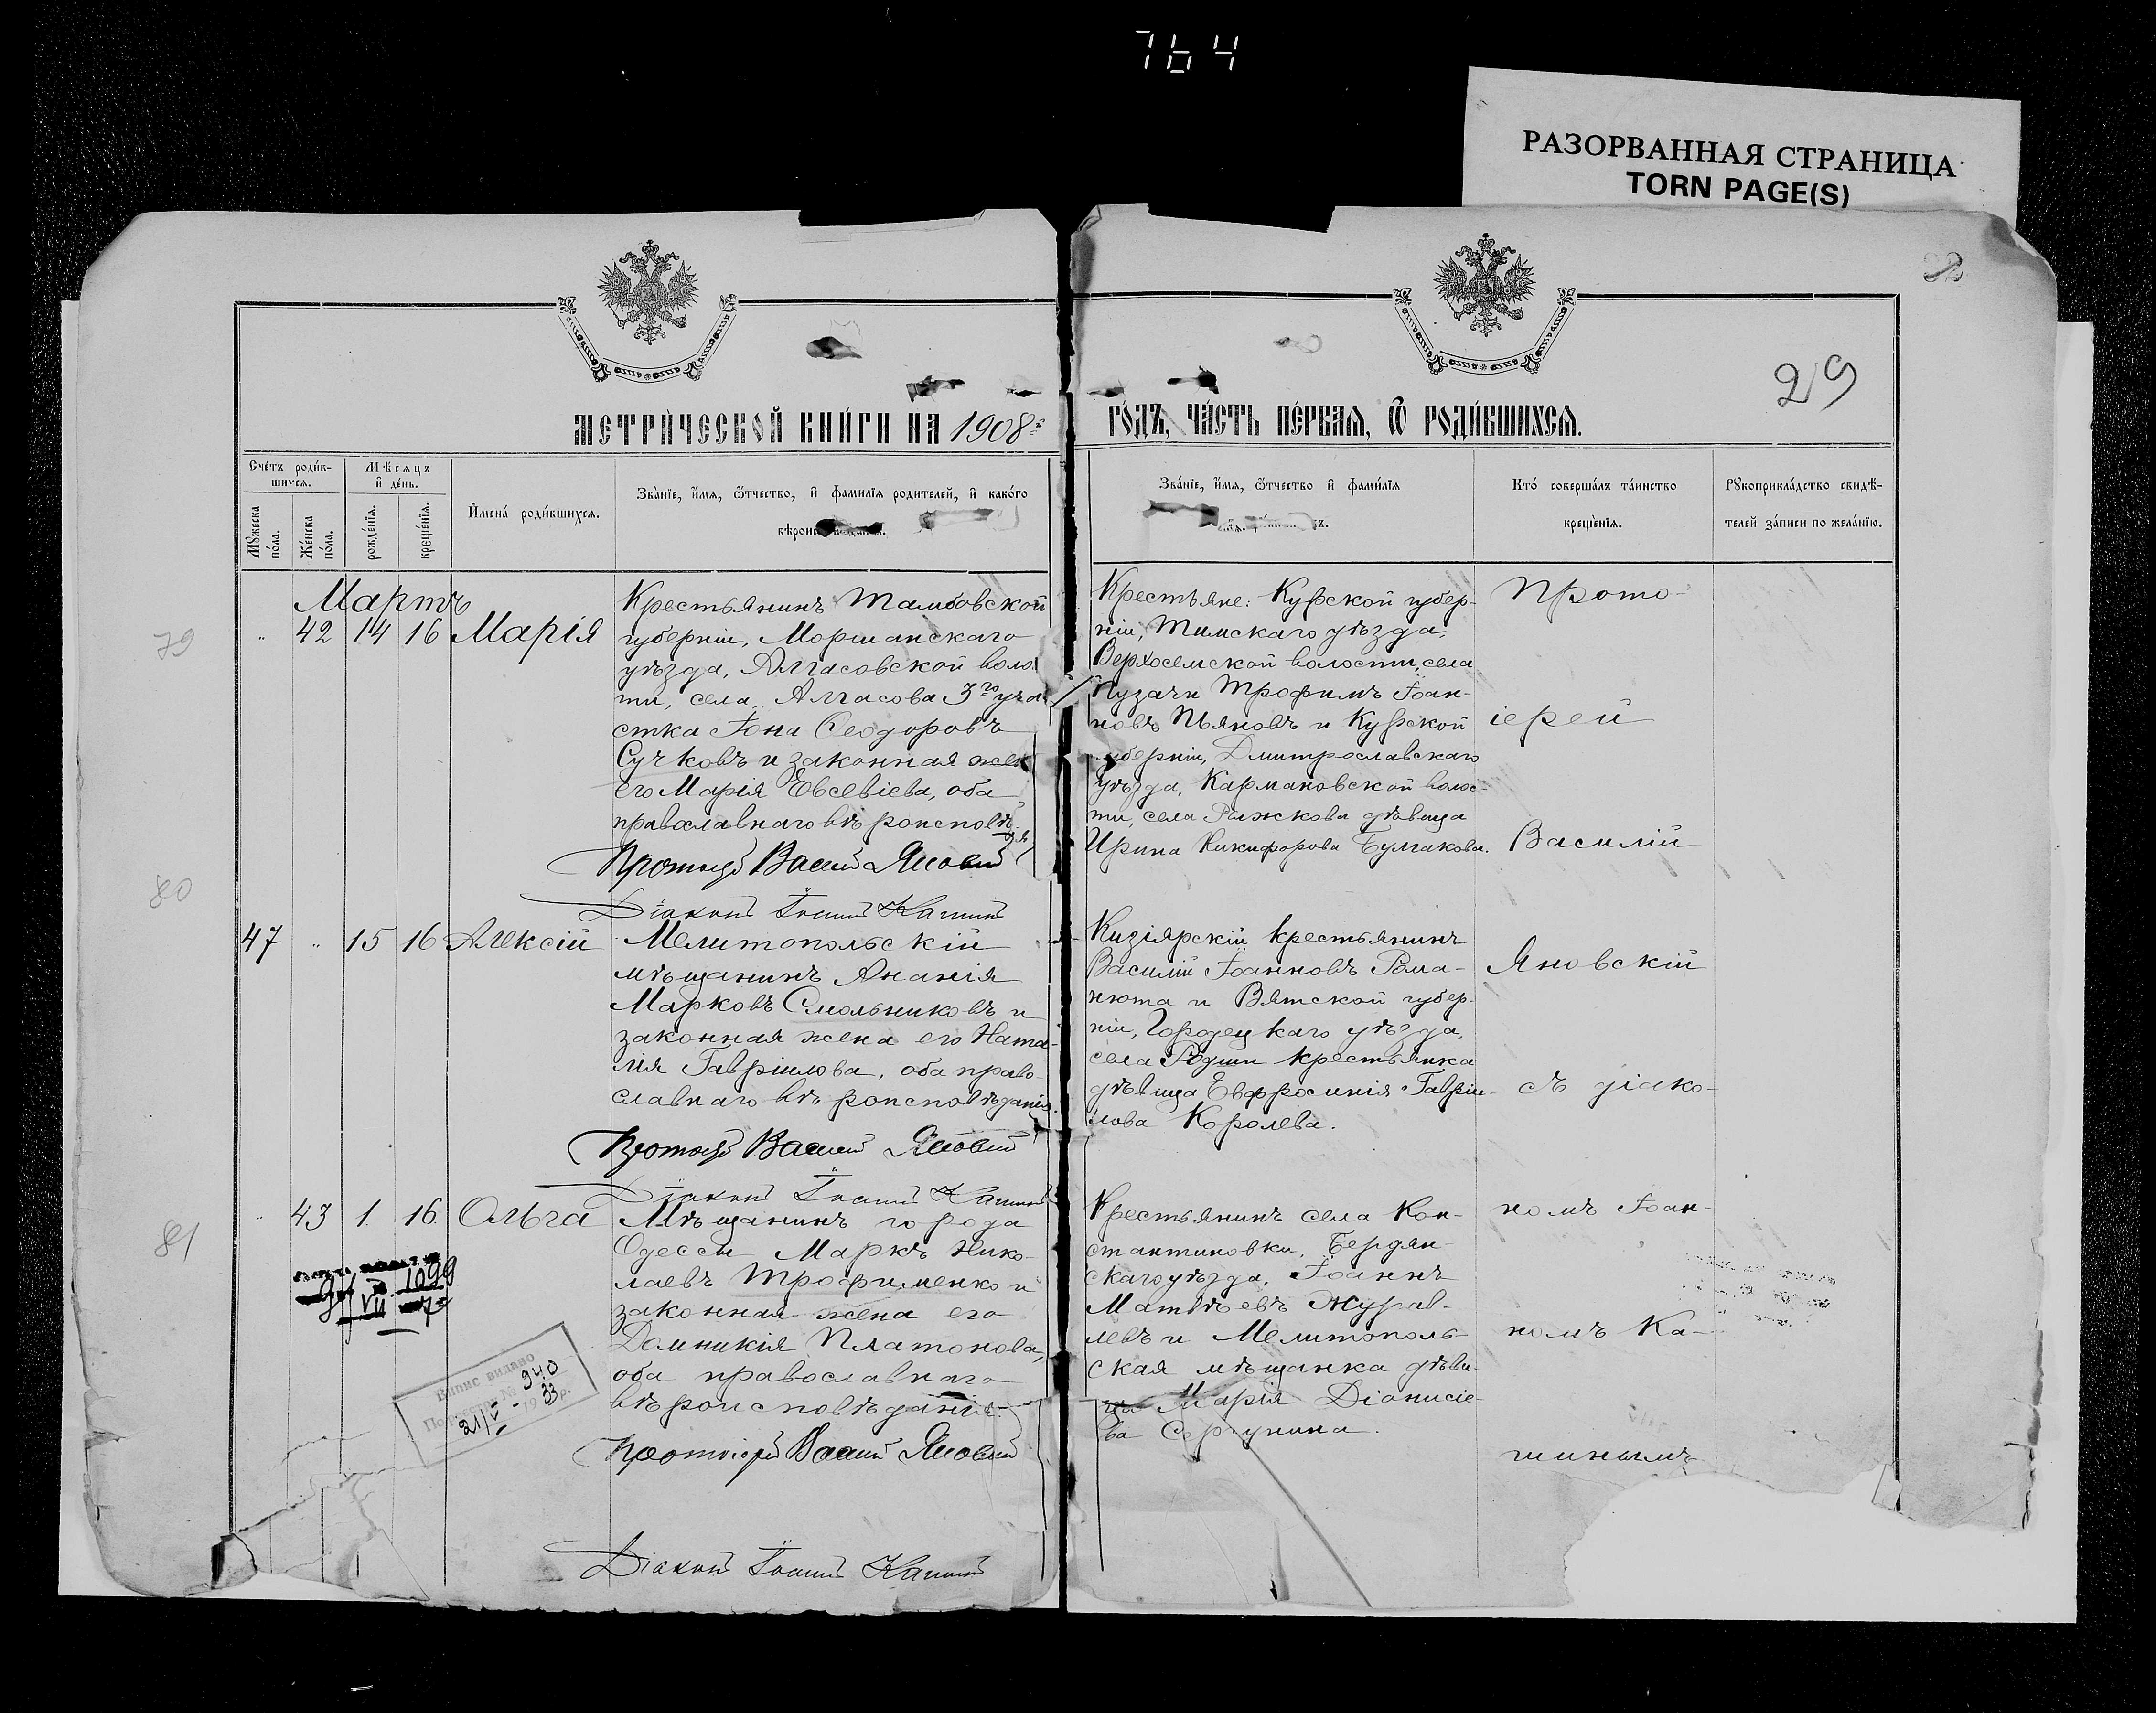 764
РАЗОРВАННАЯ СТРАНИЦА
TORN PAGE(S)
29
МЕТРИ́ЧЕСКОЙ КНИ́ГИ НА 1908 ГО́ДЪ, ЧА́СТЬ ПЕ́РВАЯ, Ѿ РОДИ́ВШИХСЯ.
Сче́тъ роди́в-
шихся.
Му́жеска по́ла.
Же́нска по́ла.
Мѣ́сяцъ
и де́нь.
рожде́нїя.
креще́нїя.
Имена́ роди́вшихся.
Зва́нїе, и́мя, ѻ́тчество, и фами́лїя роди́телей, и како́го
Зва́нїе, и́мя, ѻ́тчество и фами́лїя
Кто́ соверша́лъ та́инство
креще́нїя.
Рукоприкла́дство свидѣ́-
телей за́писи по жела́нїю.
Мартъ
79
42 14 16 Марія
Крестьянинъ Тамбовской
губерніи, Моршанскаго
уѣзда, Алгасовской воло
ти, села Алгасова 3го уча
стка Іона Ѳеодоровъ
Сучковъ и законная жен
его Марія Евсевіева, оба
православнаго вѣроисповѣ
Протоіерей Василій Яновскій
Діаконъ Іоаннъ Кашинъ
Крестьяне: Курской губер-
ніи, Тимскаго уѣзда,
Верхосемской волости, села
Пузачи Трофимъ Іоан-
новъ Пьяновъ и Курской
губерніи, Дмитрославскаго
уѣзда, Кармановской волос-
ти, села Рыжкова дѣвица
Ирина Никифорова Булгакова.
80
47 " 15 16 Алексій
Мелитопольскій
мѣщанинъ Ананія
Марковъ Смольниковъ и
законная жена его Ната-
лія Гавріилова, оба право-
славнаго вѣроисповѣданія.
Протоіерей Василій Яновскій
Діаконъ Іоаннъ Кашинъ
Кизіярскій крестьянинъ
Василій Іоанновъ Рома-
нюта и Вятской губер-
ніи, Городецкаго уѣзда,
села крестьянка
дѣвица Евфросинія Гавріи-
лова Королева.
81
43 1 16 Ольга
Мѣщанинъ города
Одессы Маркъ Нико-
лаевъ Трофименко и
законная жена его
Домникія Платонова,
оба православнаго
вѣроисповѣданія.
Протоіерей Василій Яновскій
Діаконъ Іоаннъ Кашинъ
Крестьянинъ села Кон-
стантиновки, Бердян-
скаго уѣзда, Іоаннъ
Матѳѣевъ Журав-
левъ и Мелитополь-
ская мѣщанка дѣви-
ца Марія Діонисіе-
ва
Прото-
іерей
Василій
Яновскій
съ діако-
номъ Іоан-
номъ Ка-
шинымъ
Випис видано
940
21/V - 1933 р.